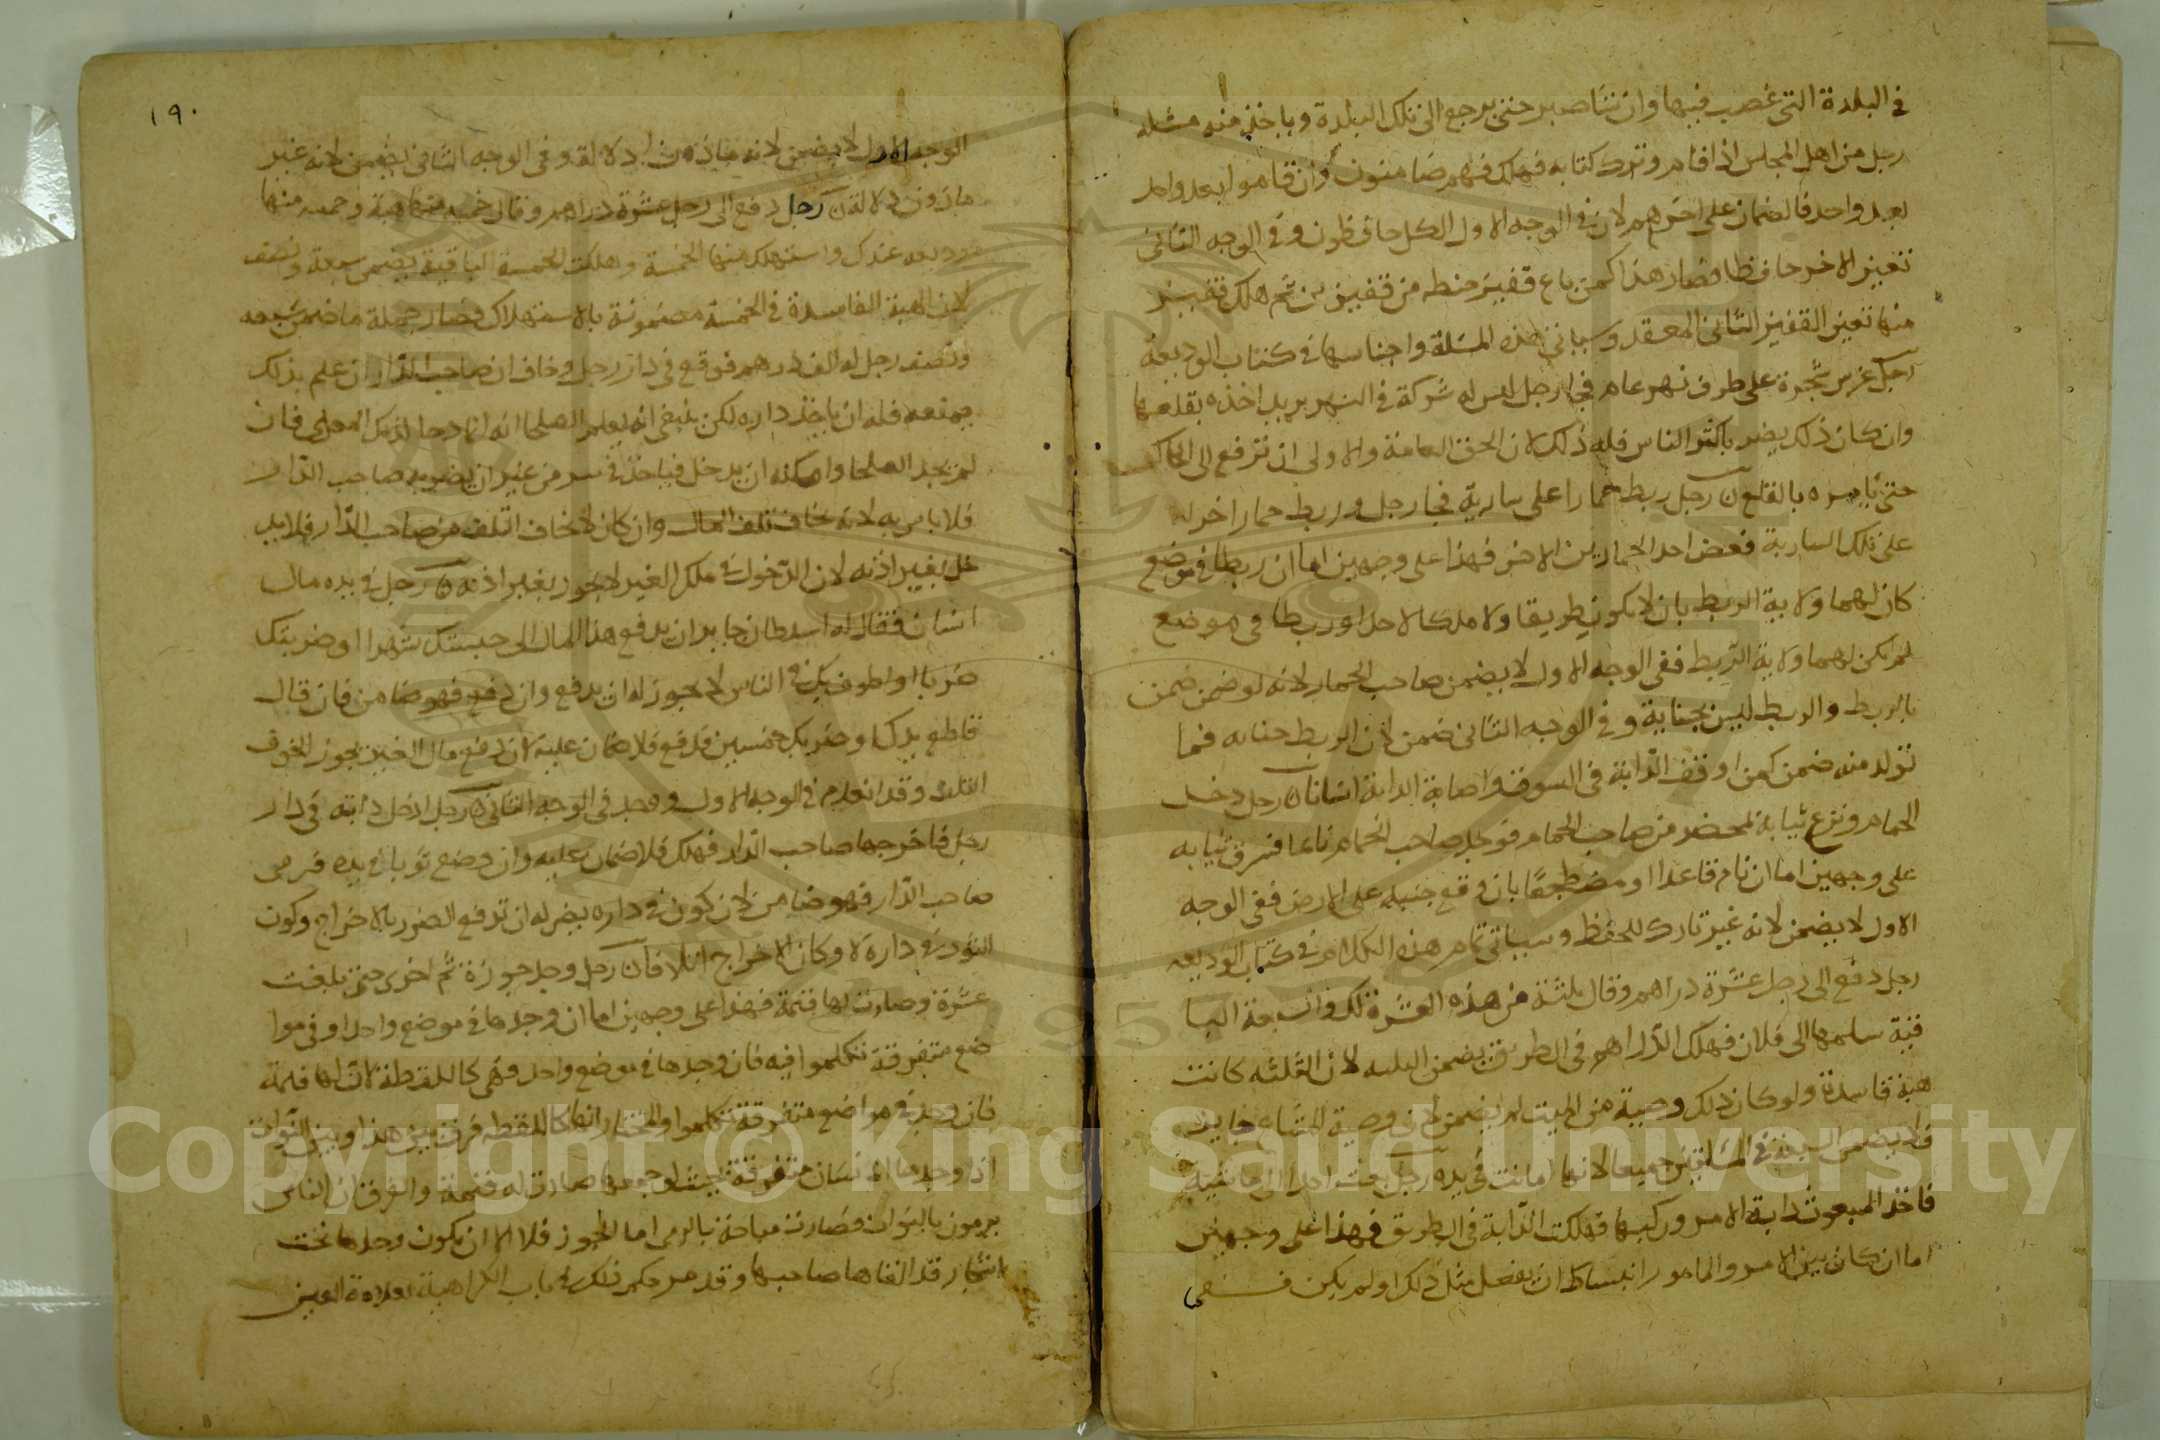 في البلدة التي غصب فيها وان شا صبر حتى يرجع الى تلك البلدة وياخذ منه مثله
رجل من اهل المجلس اذا قام وترك كتابه فهلك فهم ضامنون وان قاموا بعد واحد
بعد واحد فالضمان على اخرهم لان في الوجه الاول الكل حافظون وفي الوجه الثاني
تعين الاخر حافظا فصار هذا كمن باع قفيز حنطه من قفيزين ثم هلك قفيز
منها تعين القفيز الثاني للعقد وسياتي هذه المسئلة واجناسها في كتاب الوديعة
رجل غرس شجرة على طرف نهر عام فجا رجل ليس له شركة في النهر يريد اخذه بقلعها
وان كان ذلك يضر باكثر الناس فله ذلك لان الحق للعامة والاولى ان ترفع الى الحاكم
حتى يامره بالقلع ن رجل ربط حمارا على سارية فجا رجل وربط حمارا اخر له
على تلك السارية فعض احد الحمارين الاخر فهذا على وجهين اما ان ربطا في موضع
كان لهما ولاية الربط بان لا يكون طريقا ولا ملكا لاحد او ربطا في موضع
لم يكن لهما ولاية الربط ففي الوجه الاول لا يضمن صاحب الحمار لانه لو ضمن ضمن
بالربط والربط ليس بجناية وفي الوجه الثاني ضمن لان الربط جنايه فما
تولد منه ضمن كمن اوقف الدابة في السوق واصابة الدابة انسانا ن رجل دخل
الحمام ونزع ثيابه بمحضر من صاحب الحمام فوجد صاحب الحمام نايما فسرق ثيابه
على وجهين اما ان نام قاعدا او مضطجعا بان وقع جنبه على الارض ففي الوجه
الاول لا يضمن لانه غير تارك للحفظ وسياتي تمام هذه الكلام في كتاب الوديعه
رجل دفع الى رجل عشرة دراهم وقال ثلثة من هذه العشرة لك والسبعة البا
قية سلمها الى فلان فهلك الدراهم في الطريق يضمن الثلثه لان الثلثه كانت
هبة فاسدة ولو كان ذلك وصية من الميت لم يضمن لان وصية المشاع جايز
ولا يضمن السبعة في المسئلتين جميعا لانها امانت في يده رجل بعث احدا الى ماشية
فاخذ المبعوث دابة الامر وركبها فهلكت الدابة في الطريق فهذا على وجهين
اما ان كان بين الامر والمامور انبساط ان يفعل مثل ذلك او لم يكن ففي
١٩٠
الوجه الاول لا يضمن لانه ماذون دلالة وفي الوجه الثاني يضمن لانه غير
ماذون دلالة ن رجل دفع الى رجل عشرة دراهم وقال خمسة منها هبة وخمسه منها
وديعه عندك واستهلك منها الخمسة وهلكت الخمسة الباقية يضمن سبعة ونصف
لان الهبة الفاسدة في الخمسة مضمونة بالاستهلاك فصار جملة ما ضمن سبعه
ونصف رجل له الف درهم فوقع في دار رجل وخاف ان صاحب الدار ان علم بذلك
يمنعه فله ان ياخذ داره لكن ينبغي انه يعلم الصلحا انه انما دخل لذلك المعنى فان
لم يجد الصلحا وامكنه ان يدخل فياخذ في سر من غير ان يضر به صاحب الدار
فلا باس به لانه يخاف تلف المال وان كان لا يخاف التلف من صاحب الدار فلا يد
خل بغير اذنه لان الدخول في ملك الغير لا يجوز بغير اذنه ن رجل في يده مال
انسان فقال له السلطان جاير ان يدفع هذا المال الى حبستك شهرا او ضربتك
ضربا او اطوف بك في الناس لا يجوز له ان يدفع وان دفع فهو ضامن فان قال
قاطع يدك او ضربك خمسين فدفع فلا ضمان عليه ان دفع مال الغير يجوز لخوف
التلف وقد انعدم في الوجه الاول ووجد في الوجه الثاني ن رجل ادخل دابته في دار
رجل فاخرجها صاحب الدار فهلك فلا ضمان عليه وان وضع ثوبا في يده فرمى
صاحب الدار فهو ضامن لان كون في داره يضر له ان ترفع الضرر بالاخراج وكون
الثوب في داره لا وكان الاخراج اتلافا ن رجل وجد جوزة ثم اخرى حتى بلغت
عشرة وصارت لها قيمة فهذا على وجهين اما ان وجدها في موضع واحد او في موا
ضع متفرقة تكلموا فيه فان وجدها في موضع واحد فهي كاللقطة لان لها قيمة
فان وجد في مواضع متفرقة تكلموا والمختار انها كاللقطه فرق بين هذا وبين النواة
اذا وجدها انسان متفرقة بحيث لو جمعها صارت له قيمة والفرق ان الناس
يرمون بالنوات فصارت مباحة بالرمي اما الجوز فلا الا ان يكون وجدها تحت
اشجار قد القاها صاحبها وقد مر حكم ذلك في باب الكراهية بعلامة العين
Copyright © King Saud University
1957